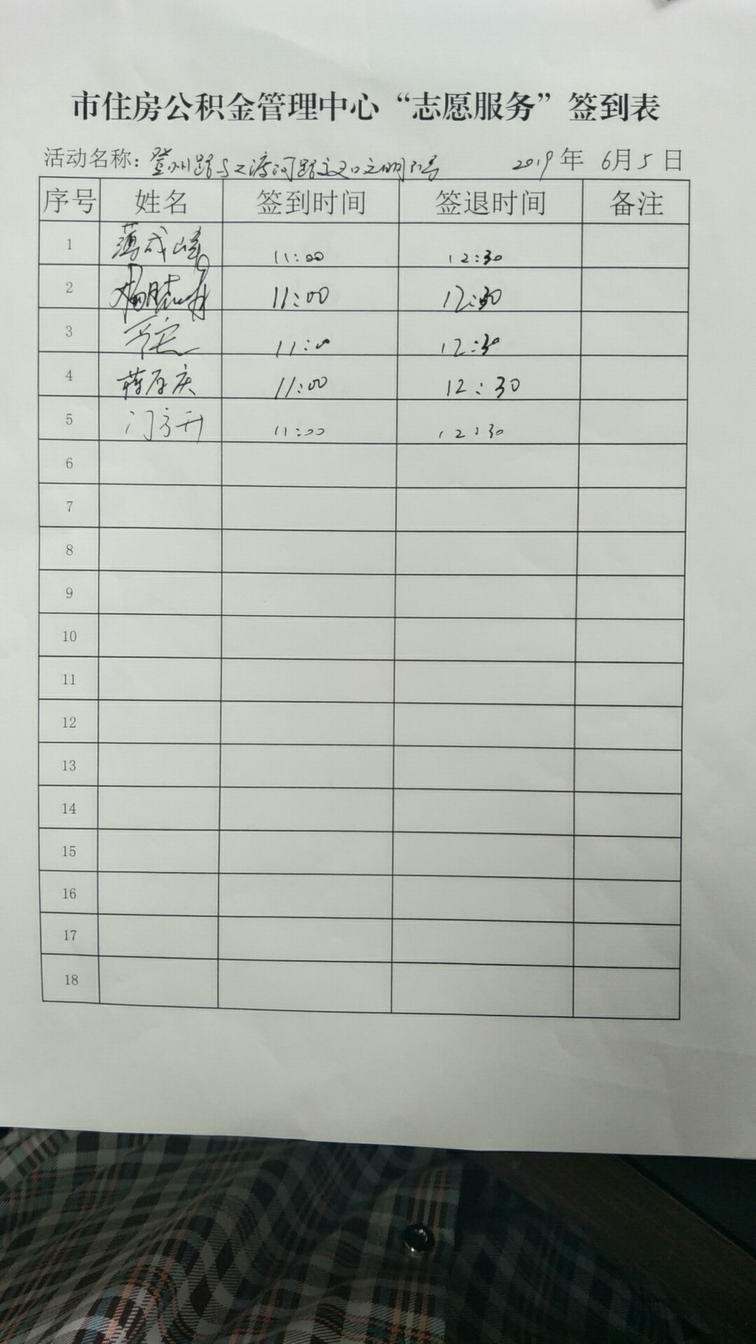 市住房公积金管理中心“志愿服务”签到表
活动名称：登州路与工商河路交叉口文明 2019年 6月5日
序号 姓名 签到时间 签退时间 备注
1 薄成峰 11:00 12:30
2 11:00 12:30
3 11:00 12:30
4 蒋存庆 11:00 12:30
5 门方升 11:00 12:30
6
7
8
9
10
11
12
13
14
15
16
17
18